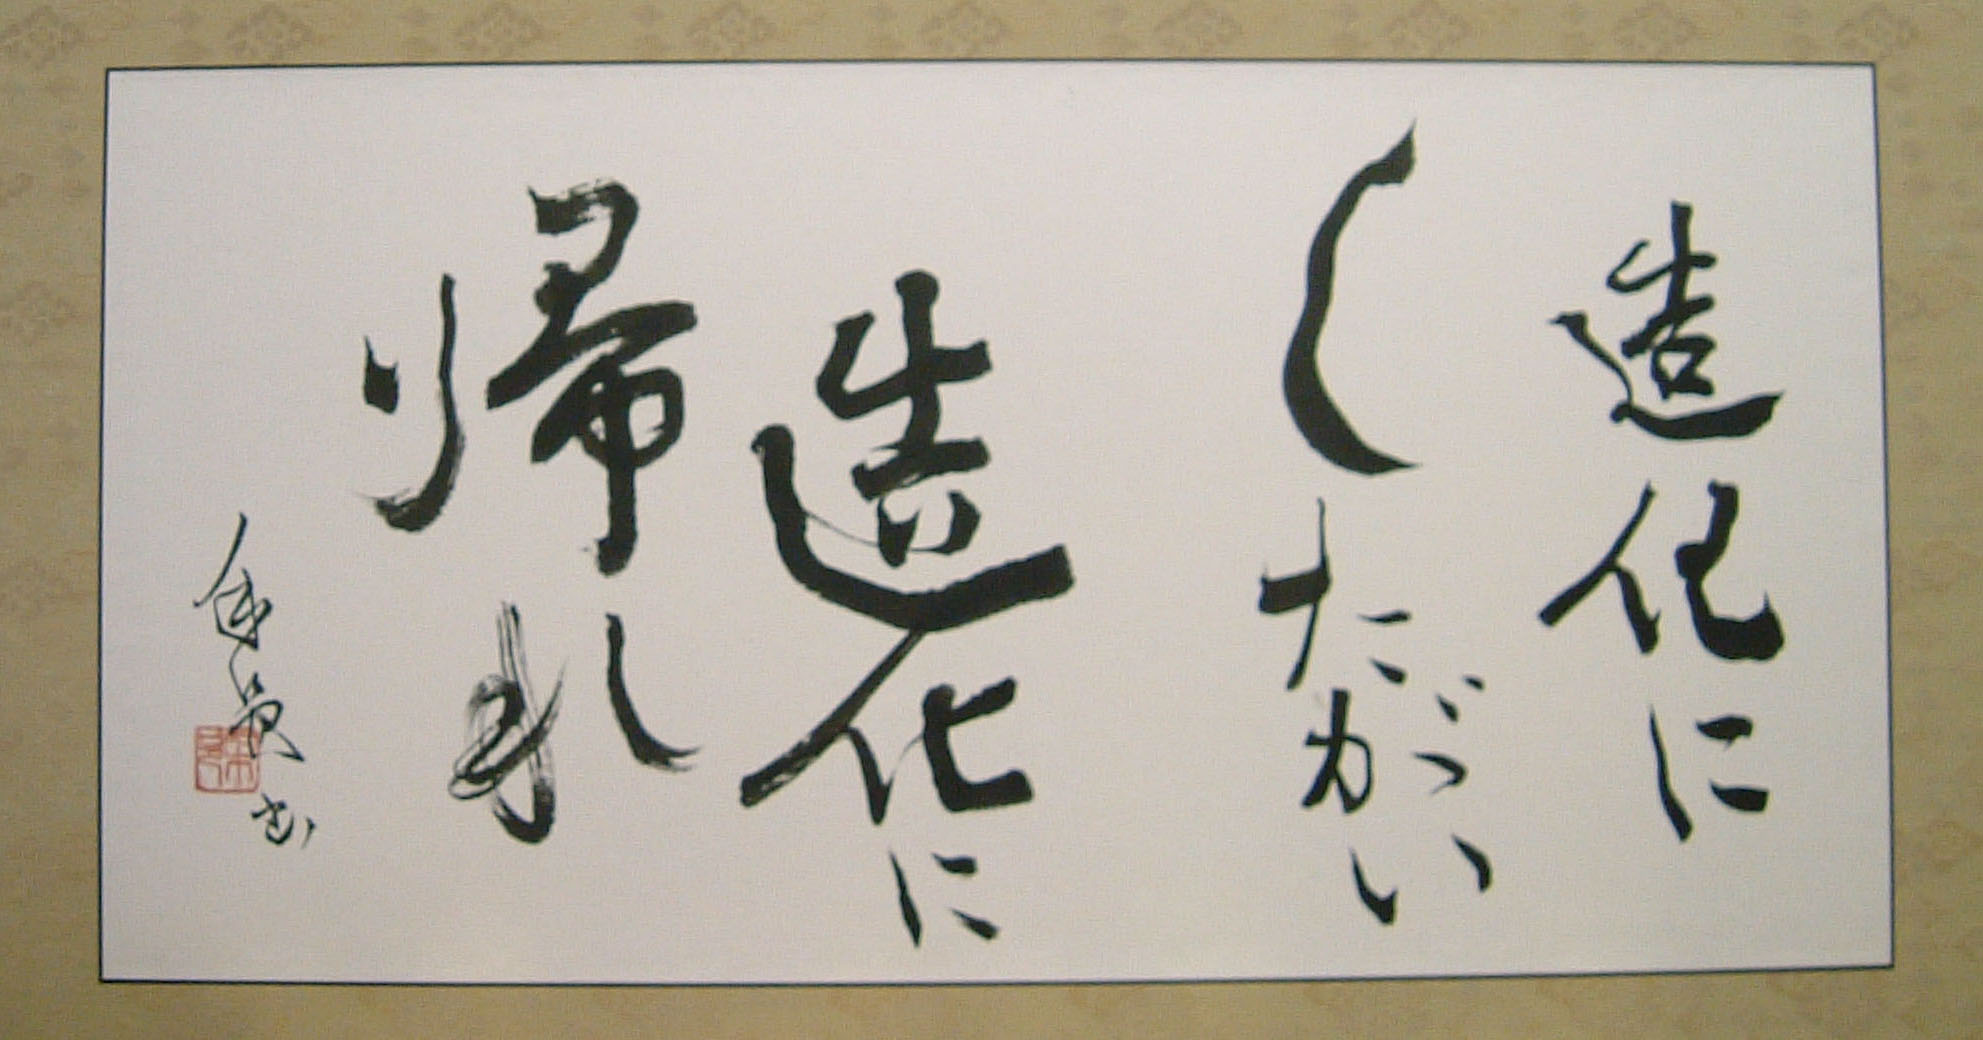 造化に
したがい
造化に
帰れ